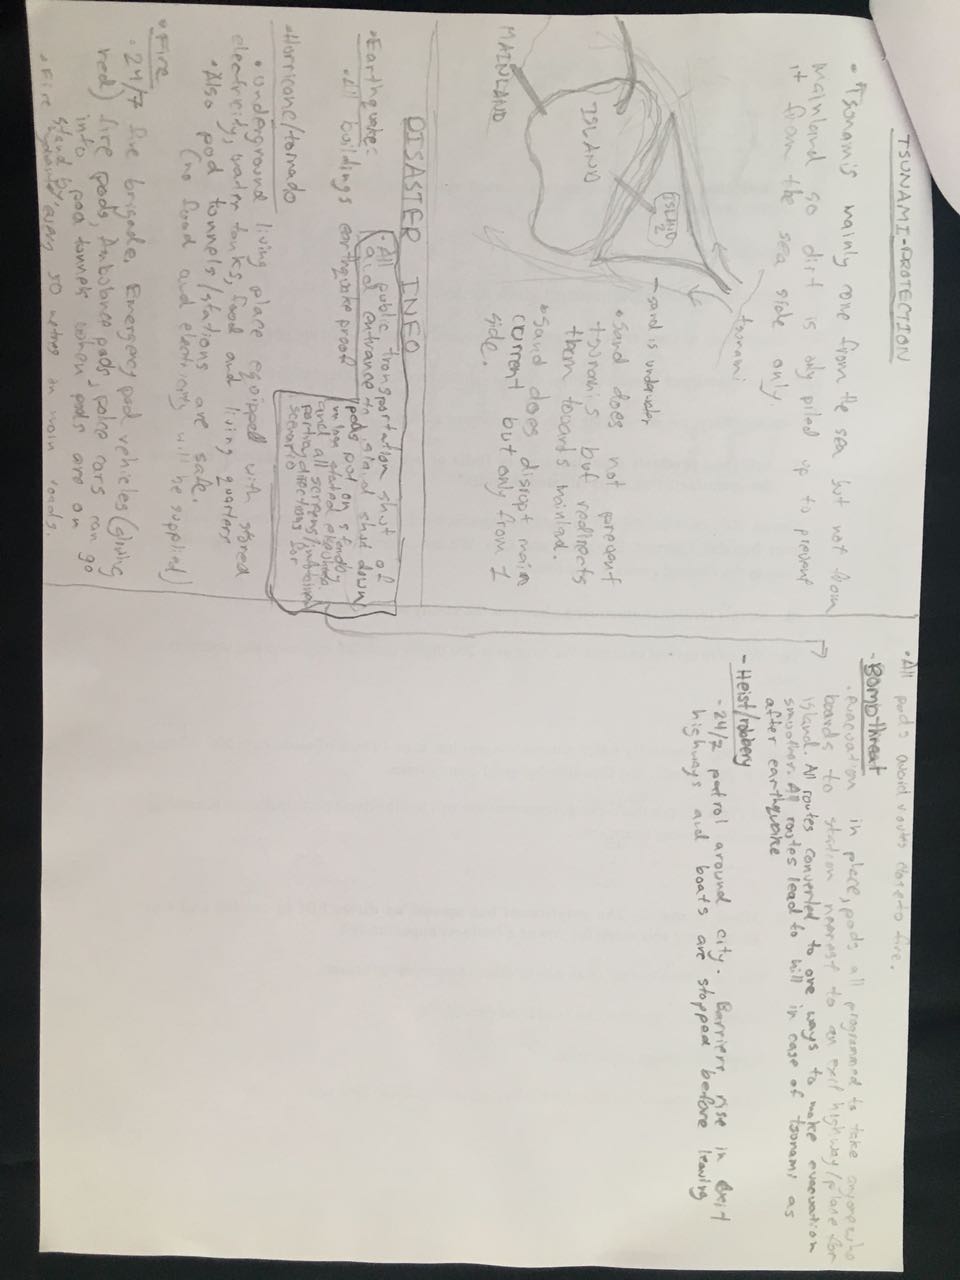 TSUNAMI-PROTECTION
• Tsunamis mainly come from the sea but not from
Mainland so dirt is only piled up to prevent
it from the sea side only
tsunami
ISLAND
2
ISLAND
MAINLAND
MAINLAND
sand is underwater
• sand does not prevent
tsunamis but redirects
them towards mainland.
• Sand does disrupt main
current but only from 1
side.
DISASTER INFO
• Earthquake:
• All buildings earthquake proof
• All public transportation shut of
and entrance to island shut down
pods put on standby
unless stated otherwise.
and all screens/intercom
portray directions for
scenario
• Horricane/tornado
• underground living place equipped with stored
electricity, water tanks, food and living quarters
• Also pod tunnels/stations are safe.
(no food and electricity will be supplied)
• Fire
• 24/7 fire brigade. Emergency pod vehicles (glowing
red) fire pods, Ambulance pods, police cars can go
into pod tunnels when pods are on
stand by.
• Fire hydrants every 50 metres in main roads.
• All pods avoid routes close to fire.
- Bomb threat
• evacuation in place, pods all programmed to take anyone who
boards to station nearest to an exit highway/plane from
island. All routes converted to one ways to make evacuation
smoother. All routes lead to hill in case of tsunami as
after earthquake
- Heist/robbery
- 24/7 patrol around city. Barriers rise in exit
highways and boats are stopped before leaving